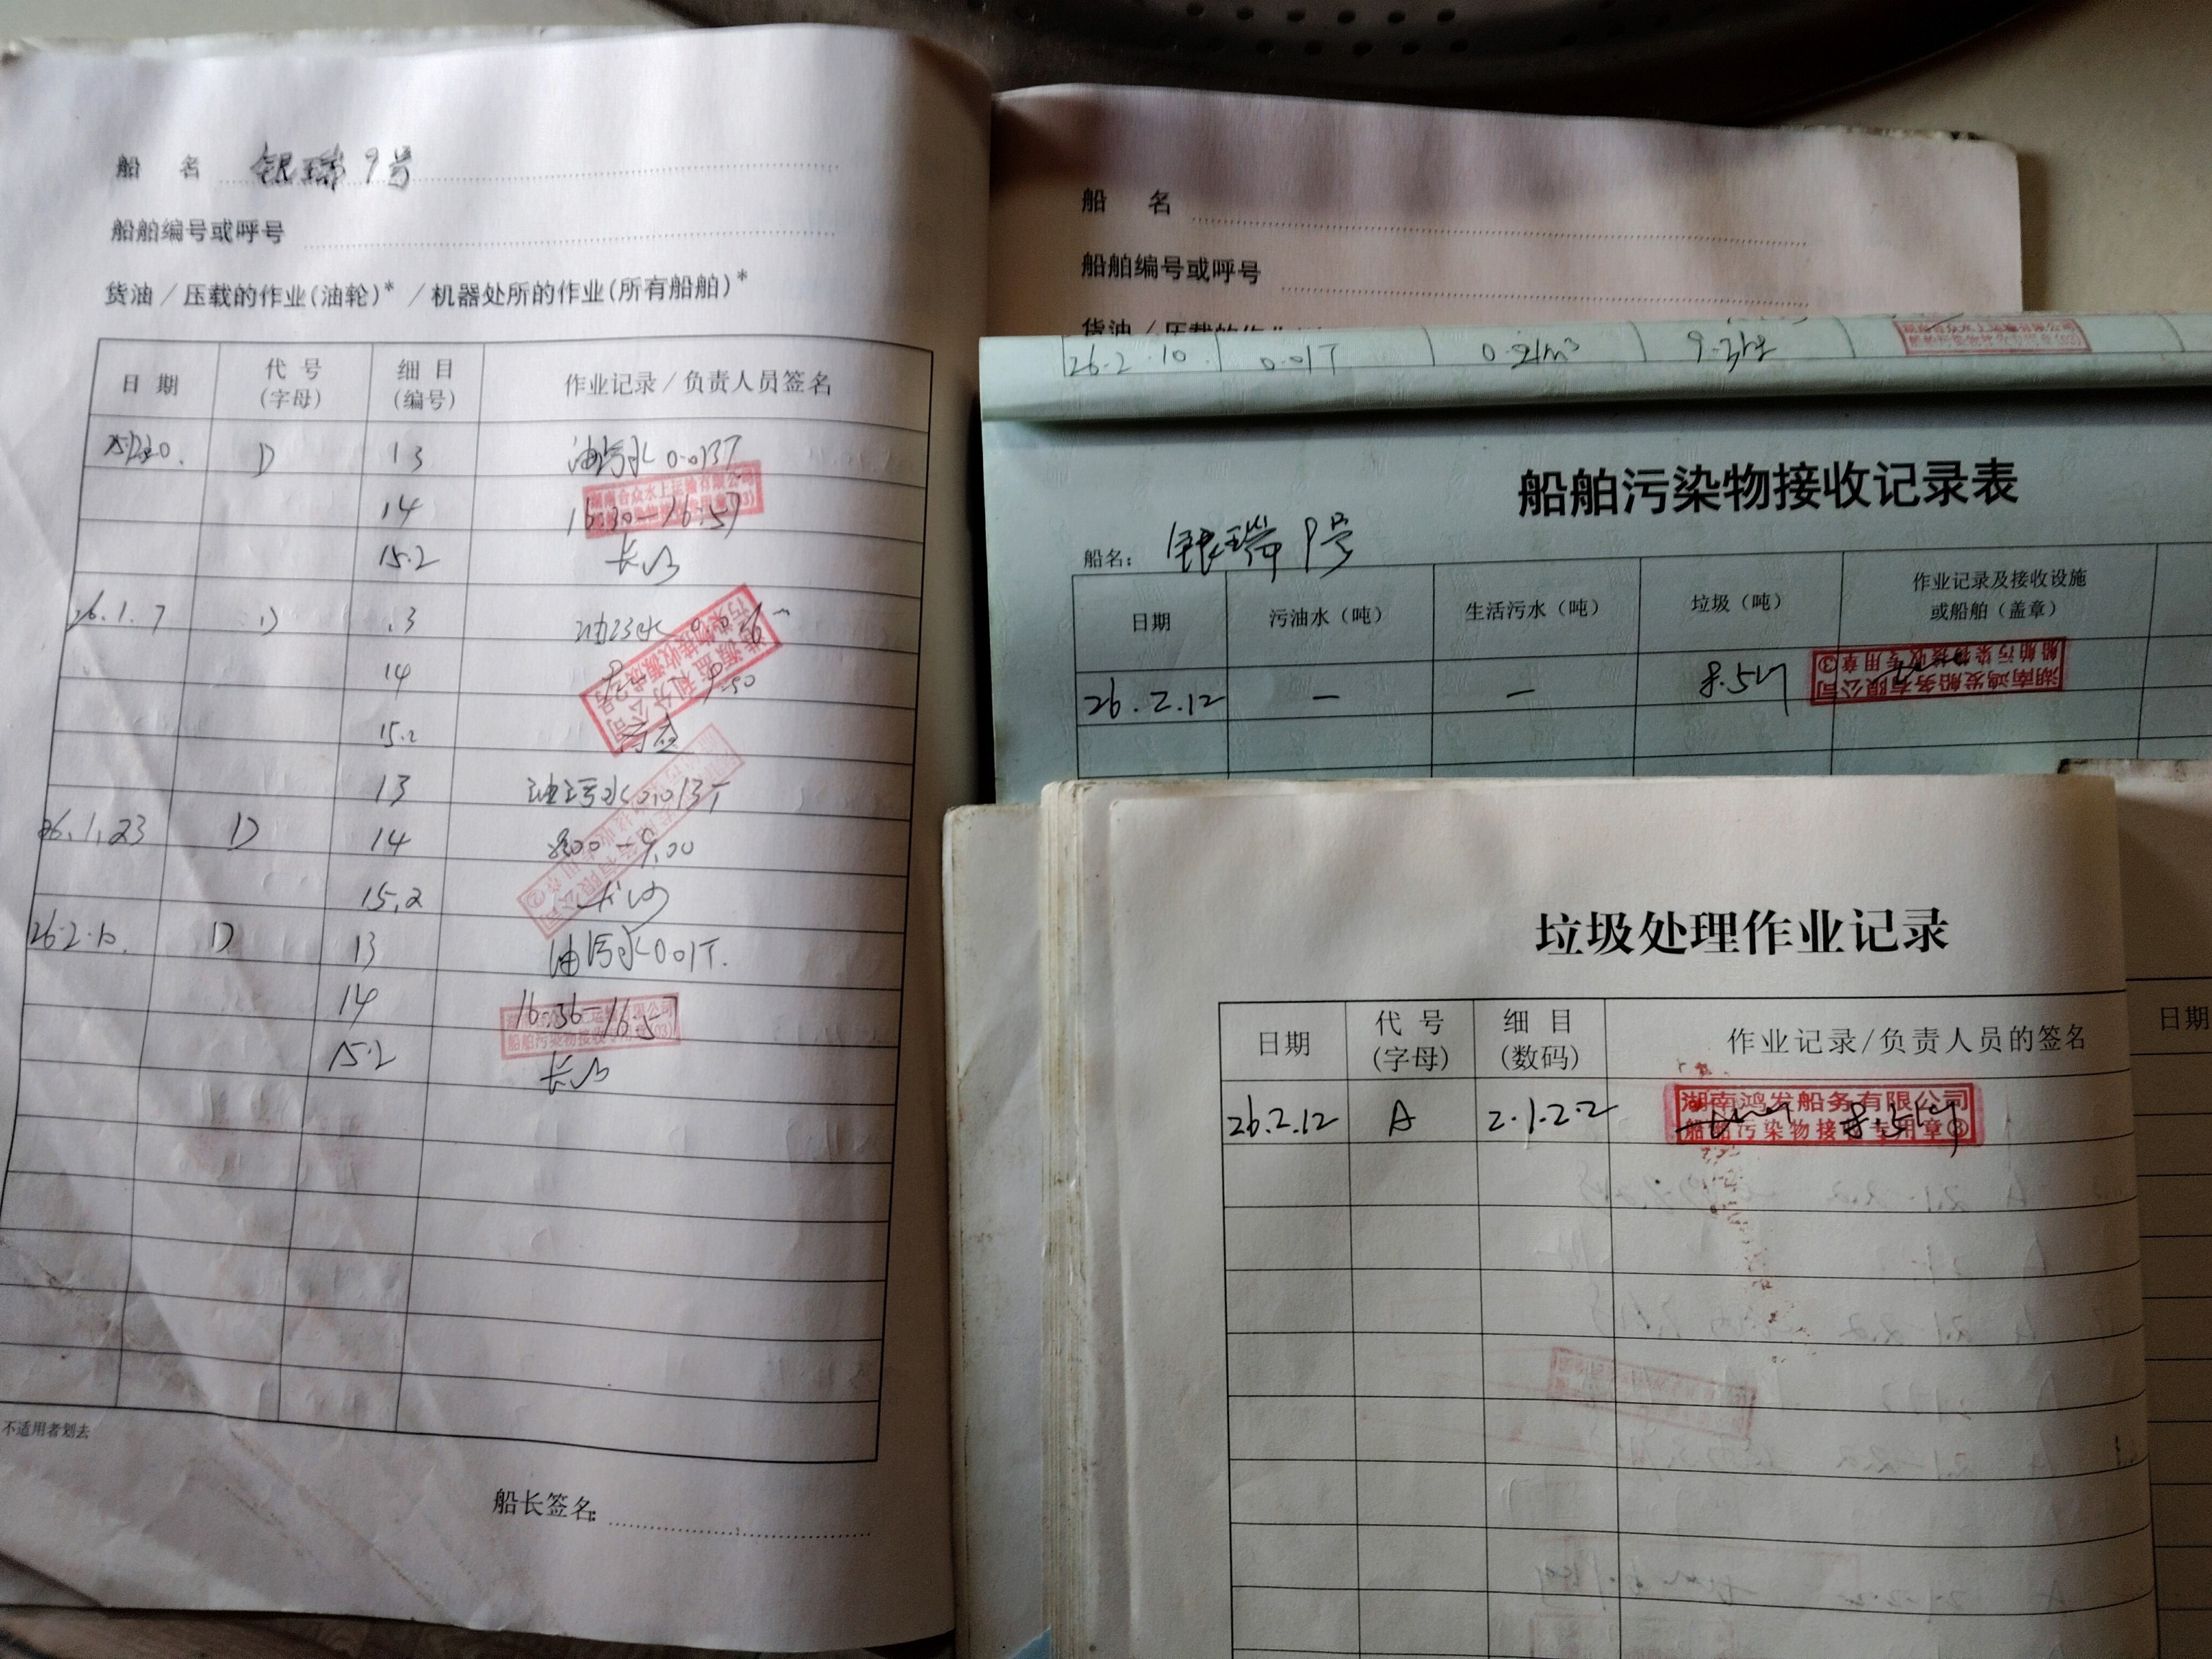 船 名 银瑞9号
船舶编号或呼号
货油／压载的作业(油轮)*／机器处所的作业(所有船舶)*
日期 代号(字母) 细目(编号) 作业记录／负责人员签名
D 13 油污水0.013T
14 16:30-16:57
湖南合众水上运输有限公司
15.2 长沙
26.1.7 D 13 油污水
14
15.2
13 油污水0.013T
26.1.23 D 14 8:00-9:00
15.2 长沙
26.2.10. D 13 油污水0.01T.
14 16:36-16:5
船舶污染物接收专用章(03)
15.2 长沙
不适用者划去
船长签名:
船 名
船舶编号或呼号
货油／压载的作
26.2.10 0.01T
湖南合众水上运输有限公司
船舶污染物接收专用章(03)
船舶污染物接收记录表
船名: 银瑞9号
日期 污油水(吨) 生活污水(吨) 垃圾(吨) 作业记录及接收设施或船舶(盖章)
26.2.12 — — 8.5kg
湖南鸿发船务有限公司
船舶污染物接收专用章③
垃圾处理作业记录
日期 代号(字母) 细目(数码) 作业记录/负责人员的签名
26.2.12 A 2.1.2.2 8.5kg
湖南鸿发船务有限公司
船舶污染物接收专用章③
日期